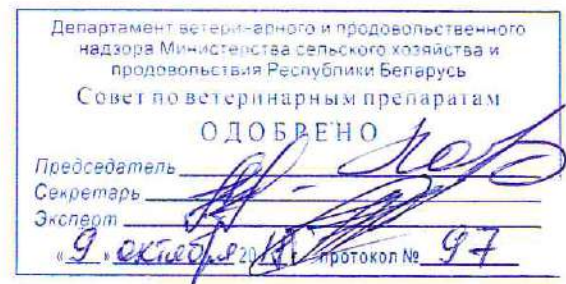 Департамент ветеринарного и продовольственного
надзора Министерства сельского хозяйства и
продовольствия Республики Беларусь
Совет по ветеринарным препаратам
ОДОБРЕНО
Председатель
Секретарь
Эксперт
«9» октября 20 г. протокол № 97